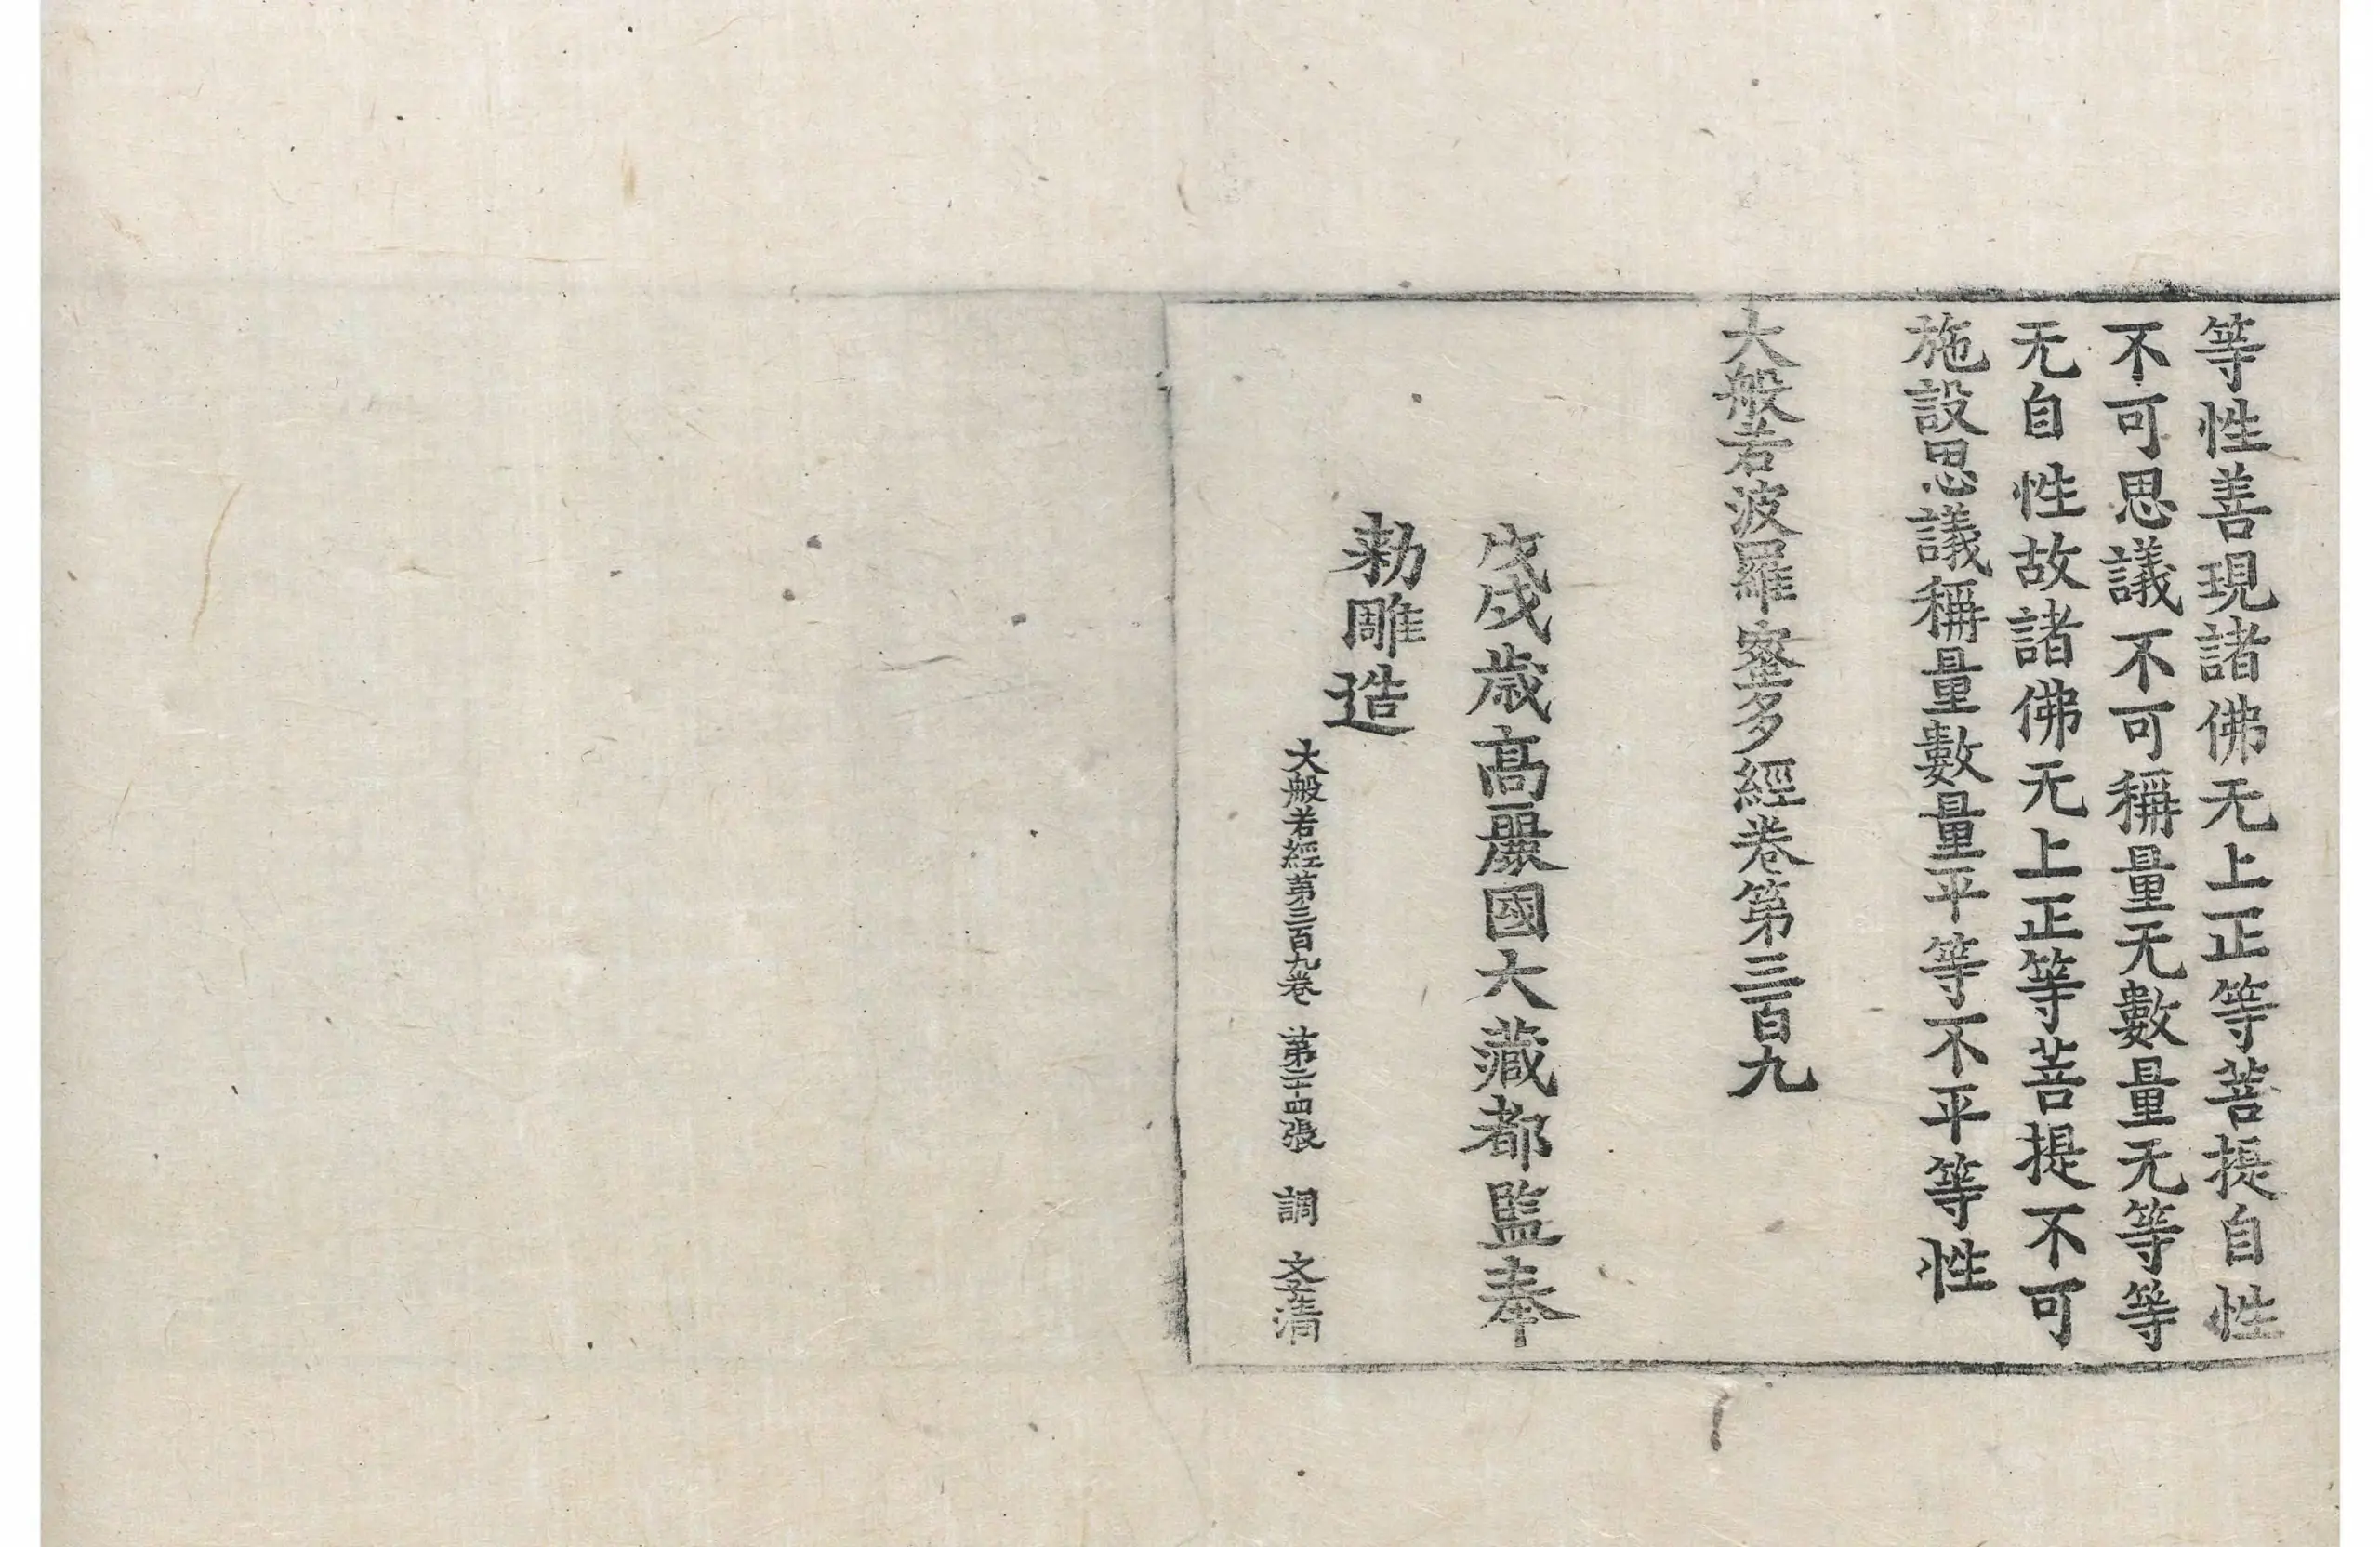 等性善現諸佛无上正等菩提自性
不可思議不可稱量无數量无等等
无自性故諸佛无上正等菩提不可
施設思議稱量數量平等不平等性
大般若波羅蜜多經卷第三百九
戊戌歲高麗國大藏都監奉
勅雕造
大般若經第三百九卷 第二十四張 調 文清